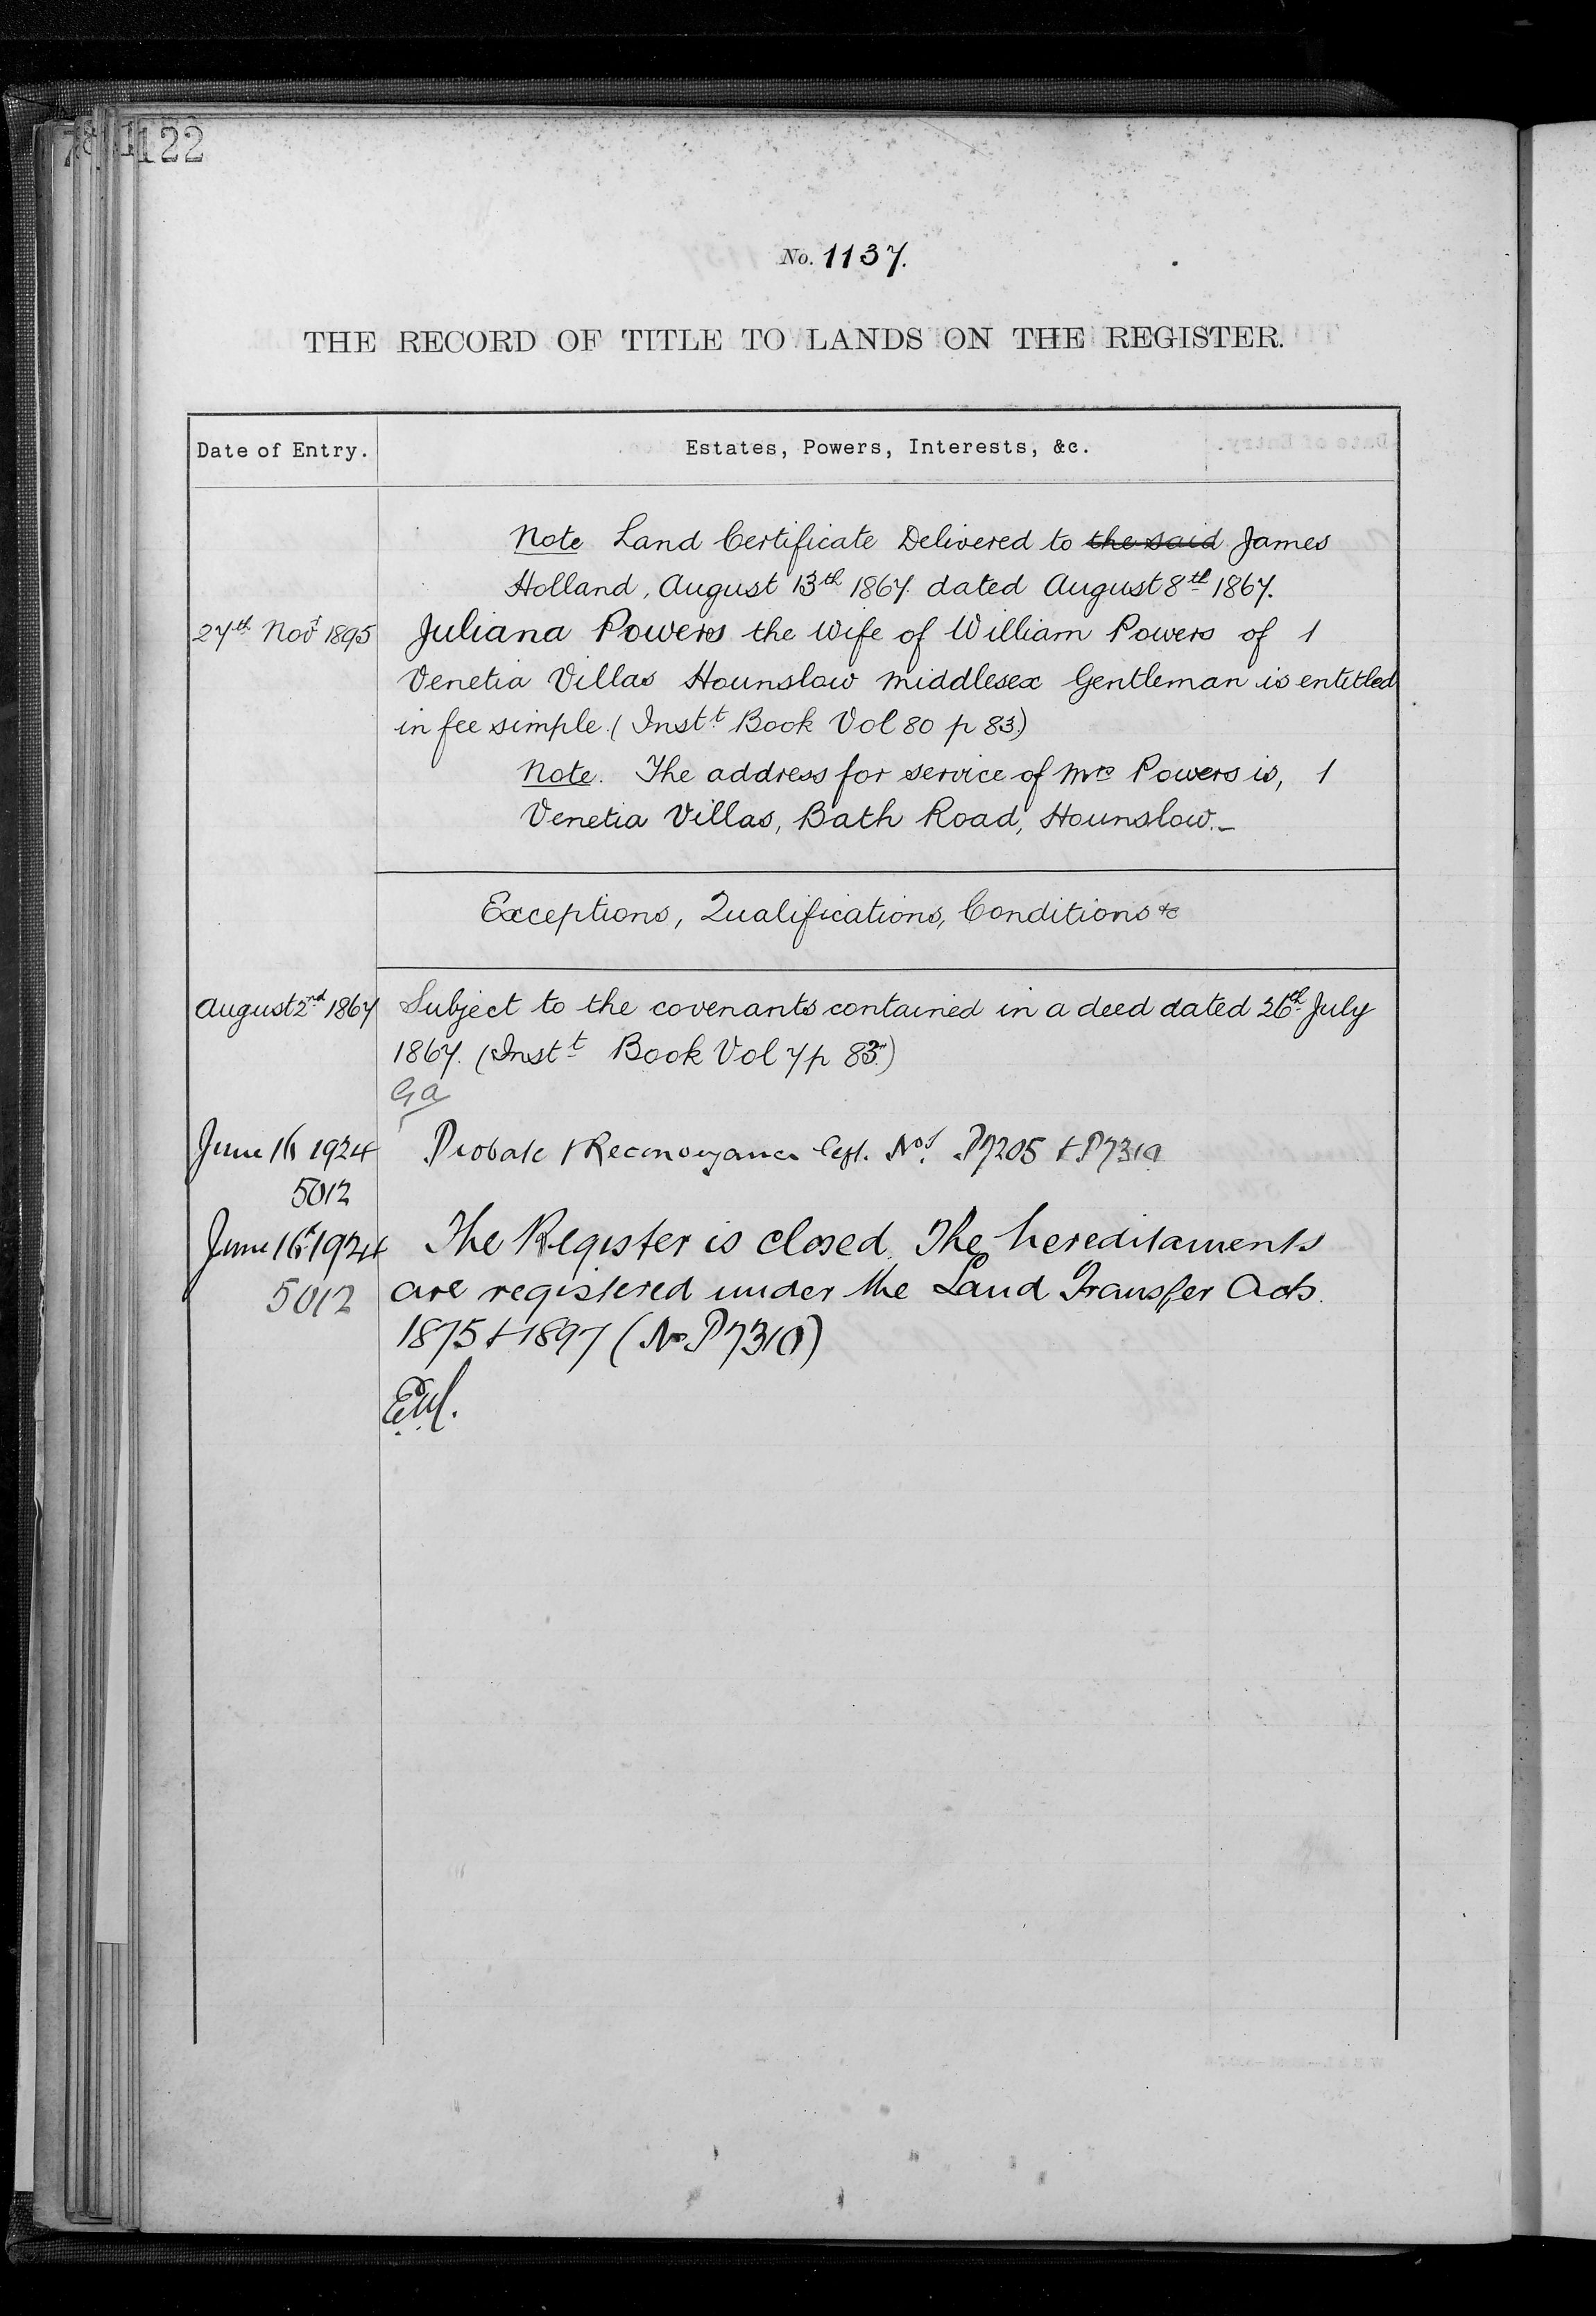 122
No. 1137.
THE RECORD OF TITLE TO LANDS ON THE REGISTER.
Date of Entry.
Estates, Powers, Interests, &c.
Note Land Certificate Delivered to the said James
Holland, August 13th 1867. dated August 8th 1867.
27th Novr 1895 Juliana Powers the Wife of William Powers of 1
Venetia Villas Hounslow Middlesex Gentleman is entitled
in fee simple. (Instt Book Vol 80 p 83.)
Note. The address for service of Mrs Powers is, 1
Venetia Villas, Bath Road, Hounslow._
Exceptions, Qualifications, Conditions &c
August 2nd 1867 Subject to the covenants contained in a deed dated 26th July
1867. (Instt Book Vol 7 p 83.)
GA
June 16 1924 Probate & Reconveyance Nos. P7205 & P7310
5012
June 16 1924 The Register is closed. The hereditaments
5012 are registered under the Land Transfer Acts.
1875 & 1897 (No P7310)